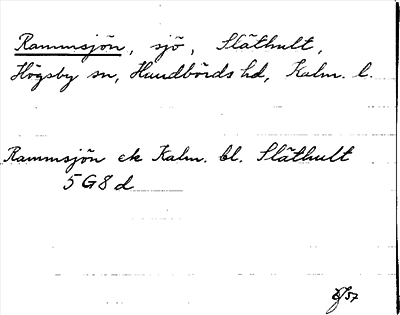 Rammsjön, sjö, Släthult,
Högsby sn, Handbörds hd, Kalm. l.
Rammsjön ek Kalm. bl. Släthult
5G8d
57